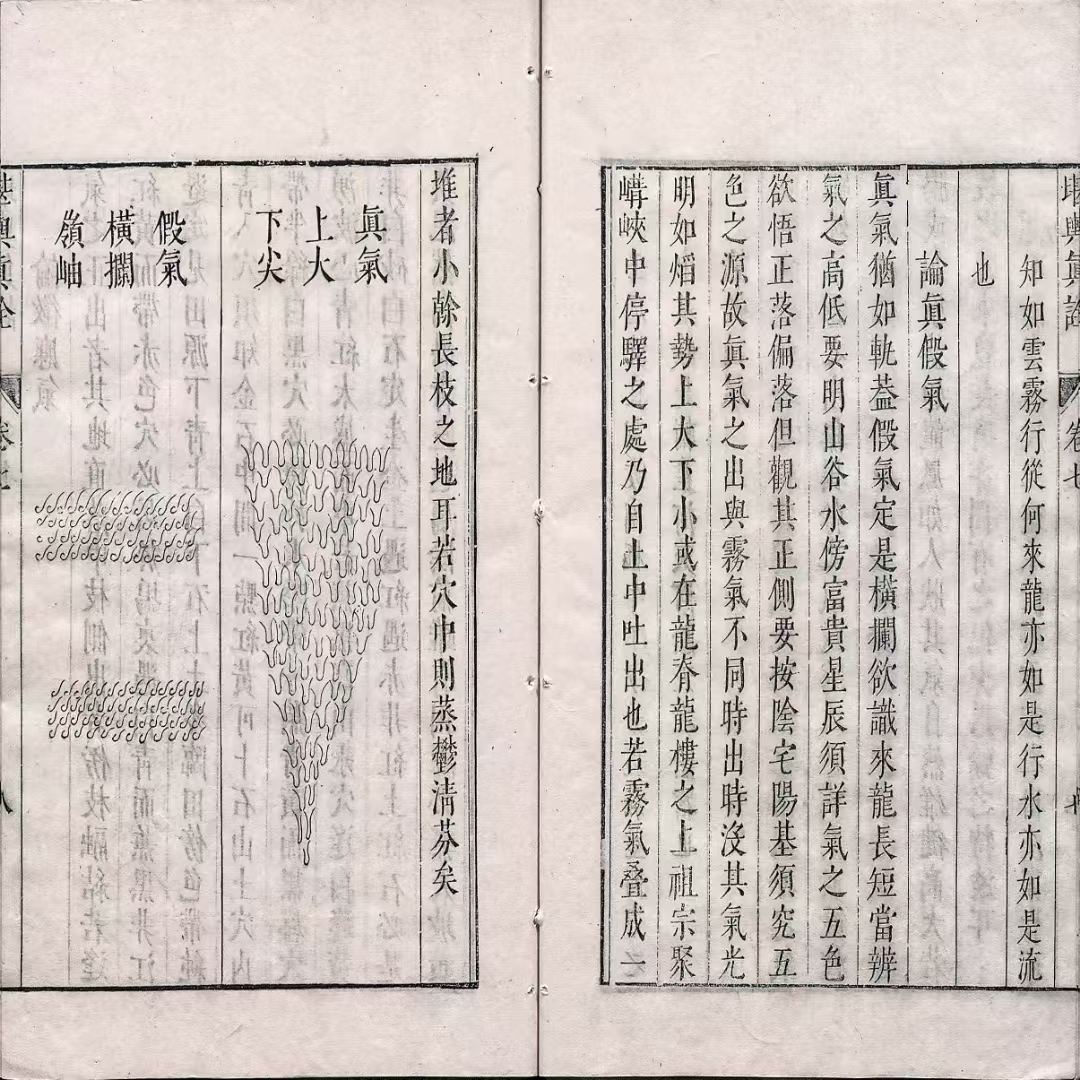 堪輿眞詮 卷七
知如雲霧行從何來龍亦如是行水亦如是流
也
論眞假氣
眞氣猶如軌葢假氣定是橫攔欲識來龍長短當辨
氣之高低要明山谷水傍富貴星辰須詳氣之五色
欲悟正落偏落但觀其正側要按陰宅陽基須究五
色之源故眞氣之出與霧氣不同時出時沒其氣光
明如熖其勢上大下小或在龍脊龍樓之上祖宗聚
峽中停驛之處乃自土中吐出也若霧氣叠成一
堆者小榦長枝之地耳若穴中則蒸鬱清芬矣
眞氣
上大
下尖
假氣
橫攔
嶺岫